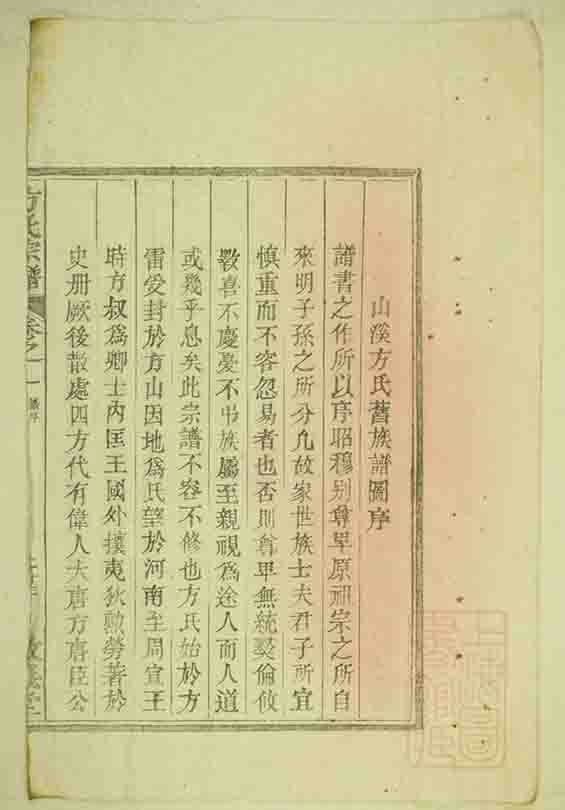 山溪方氏舊族譜圖序
譜書之作所以序昭穆别尊卑原祖宗之所自
來明子孫之所分凡故家世族士夫君子所宜
慎重而不容忽易者也否則尊卑無統彜倫攸
斁喜不慶憂不弔族屬至親視爲途人而人道
或幾乎息矣此宗譜不容不修也方氏始於方
雷爰封於方山因地爲氏望於河南至周宣王
時方叔爲卿士內匡王國外攘夷狄勳勞著於
史册厥後散處四方代有偉人大唐方唐臣公
方氏宗譜 卷之一